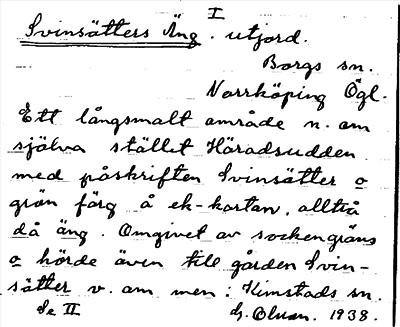 I
Svinsätters Äng. utjord.
Borgs sn.
Norrköping Ögl.
Ett långsmalt område n. om
själva stället Häradsudden
med påskriften Svinsätter o
grön färg å ek-kartan, alltså
då äng. Omgivet av sockengräns
o hörde även till gården Svin-
sätter v. om men i Kimstads sn.
Se II
G. Olsson. 1938.